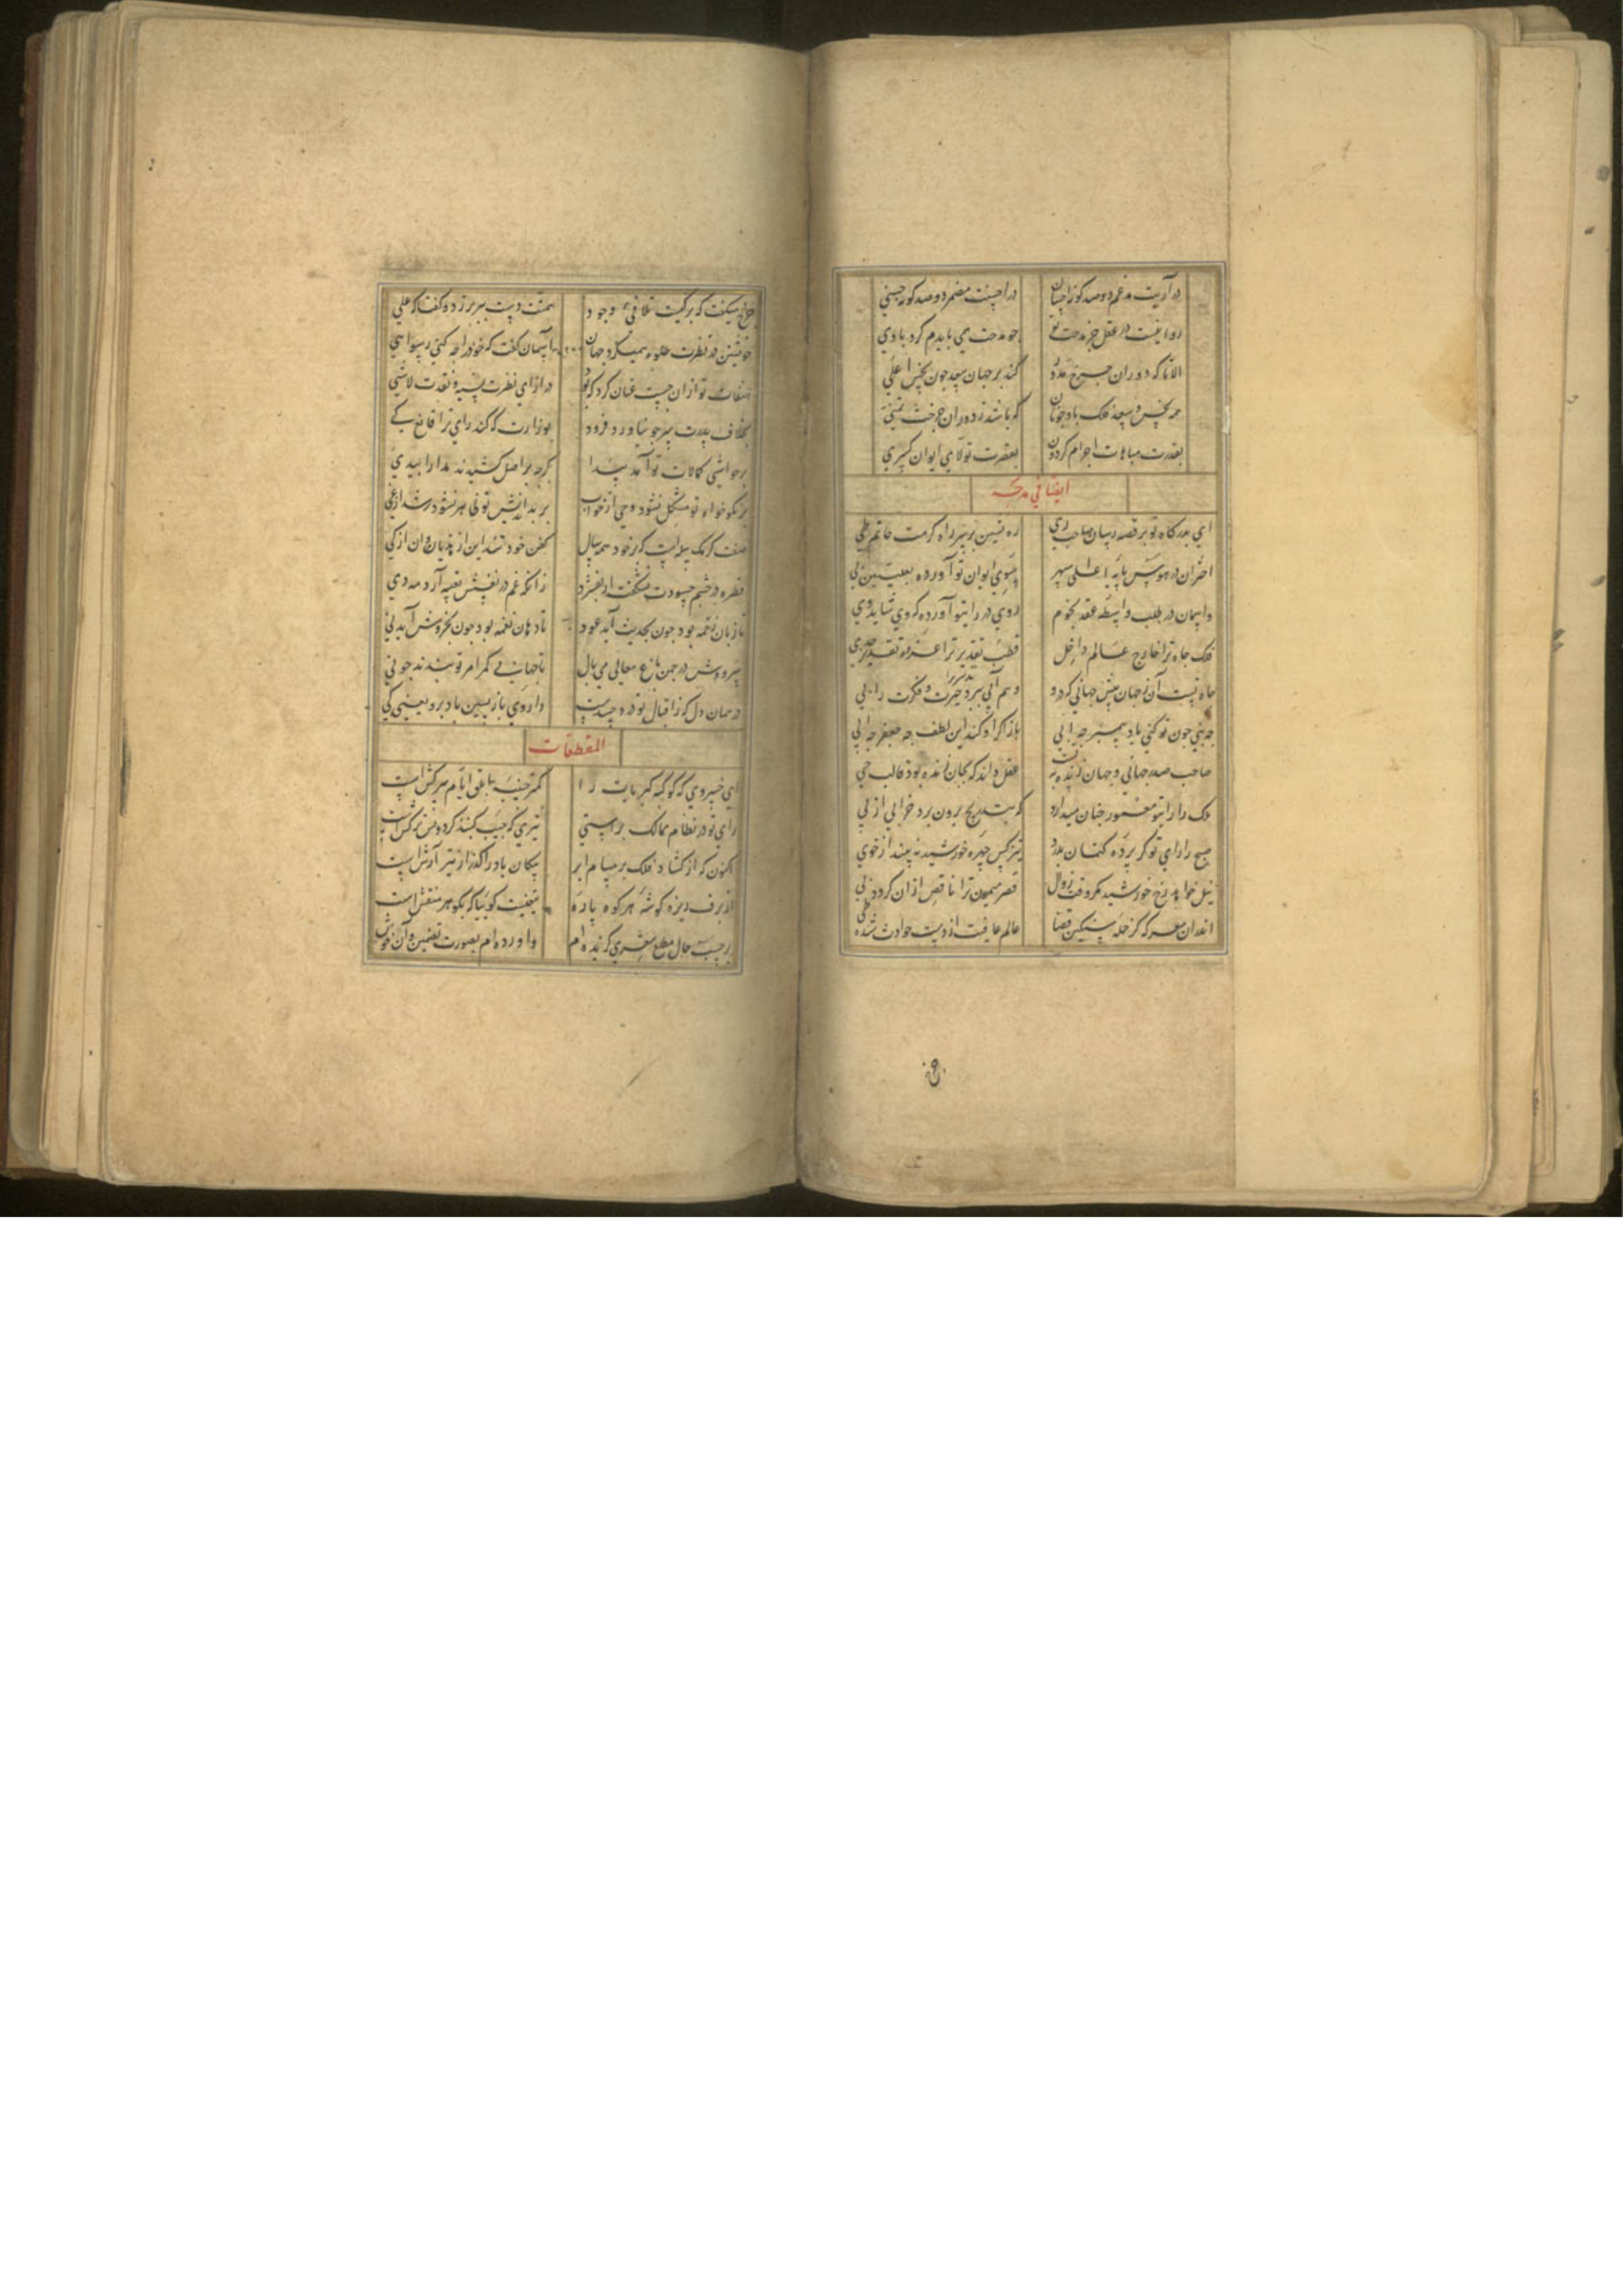 در آریت مدغم دو صد کونه احسان در احسنت مضمر دو صد کونه حسنی
روا نیست در عقل جز مدحت تو جو مدحت می بایدم کرد باری
الا تا که دوران جرخ کند بر جهان سعد جون نحس املی
همه نحس و سعد فلک باد جونان که باشد ز دوران جرخت تمنی
بقدرت مباهات اجرام کردون بعصرت تولای ایوان کسری
ایضا فی مدحه
ای بدرکاه تو بر قصه رسان صاحب ری ره نشین بر سر راه کرمت حاتم طی
اختران در هوس پایه اعلی سپهر سوی ایوان تو آورده
واسمان در طلب واسطه عقد نجوم روی در رای تو آورده که وی شاید وی
فلک جاه ترا خارج عالم داخل قطب تقدیر ترا
جاه نیست آن ز جهان بیش جهانی که درو وهم آنی سپرد حیرت و فکرت را پی
جه نبی جون تو کنی یاد پیمبر جه ابی باز اکراد کند این لطف جه جعفر جه
صاحب صدر جهانی و جهان زنده بتست عقل داند که بجان زنده بود قالب حی
ملک را رای تو معمور جنان میدارد که بتدریج برون برد خرابی از
صبح را رای تو کر پرده کتمان بدرد نیز کس جهره خورشید نه بیند از خوی
نیل خواهد رخ خورشید مکر وقت زوال قصر میمون ترا ناقص از آن کردد
اندران معرکه کز حمله سنکین قضا عالم عافیت از دست حوادث شده طی
جرخ میکفت که بر کیست تلافی وجود همتت دست ببر بر زد و کفتا که علی
خویشتن در نظرت جلوه همیکرد جهان آسمان کفت که خود را جه کنی رسوا هی
التفات تو ازان جست عنان کرد که بود در ازای نظرت نسیه و نقدت لاشی
بخلاف پدرت سر جو نیاورد فرود بوزارت که کند رای ترا قانع کی
بر حواشی کمالات تو آمد پیدا کرجه بر اصل کشیدند مدارا بیدی
بر نکوخواه تو مشکل نشود وحی از خواب بر بد اندیش تونی هر نشود رشد از غی
صفت کرمک پیله است که بر خود همه سال کفن خود تند این از دهان وان از کی
قطره در چشم حسودت نشکفت ار بفشرد زانکه غم در نفسش تعبیه آرد مه دی
تا زبان زخمه بود جون بحدیث آید عود تا دهان نغمه بود جون بخروش آید نی
سروش در جمن باغ معالی می بال تا جهانی کمر امر تو بندند جو نی
در همان دل که ز اقبال تو در وجدست داروی باز پسین باد برو یعنی کی
المقطعات
ای خسروی که کوکبه کبریات را کمتر جنیبه ابلق ایام سرکش است
رای تو در نظام ممالک براستی تیری که جیب کنبد کردونش ترکش است
اکنون که از کشاد فلک بر مسام ابر پیکان باد را کذر از تیر آرش است
از برف ریزه کوشه هر کوه پاره تیغیست کوییا که بکوهر منقش است
بر حسب حال مطلع شعری کزیده ام واورده ام بصورت تضمین و آن خوش است